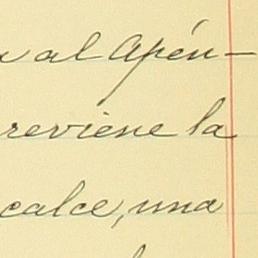 al Apén-
reviene la
calce, una